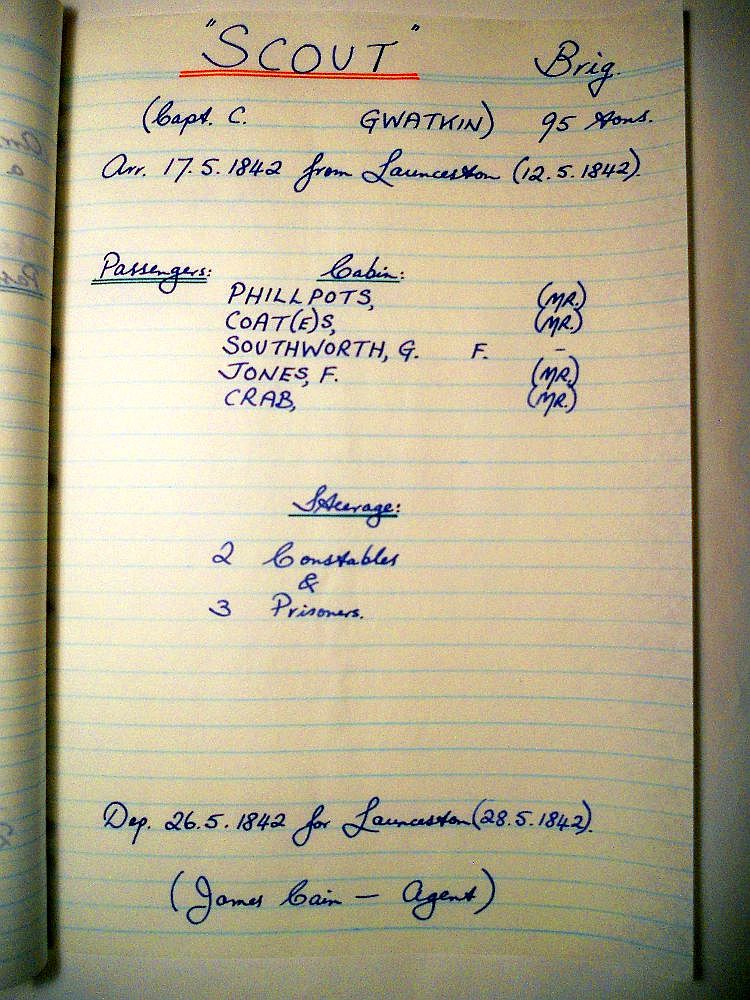 "SCOUT" Brig.
(Capt. C. GWATKIN) 95 tons.
Arr. 17.5.1842 from Launceston (12.5.1842).
Passengers: Cabin:
PHILLPOTS, (MR.)
COAT(E)S, (MR.)
SOUTHWORTH, G. F. -
JONES, F. (MR.)
CRAB, (MR.)
Steerage:
2 Constables
&
3 Prisoners.
Dep. 26.5.1842 for Launceston (28.5.1842).
(James Cain - Agent)